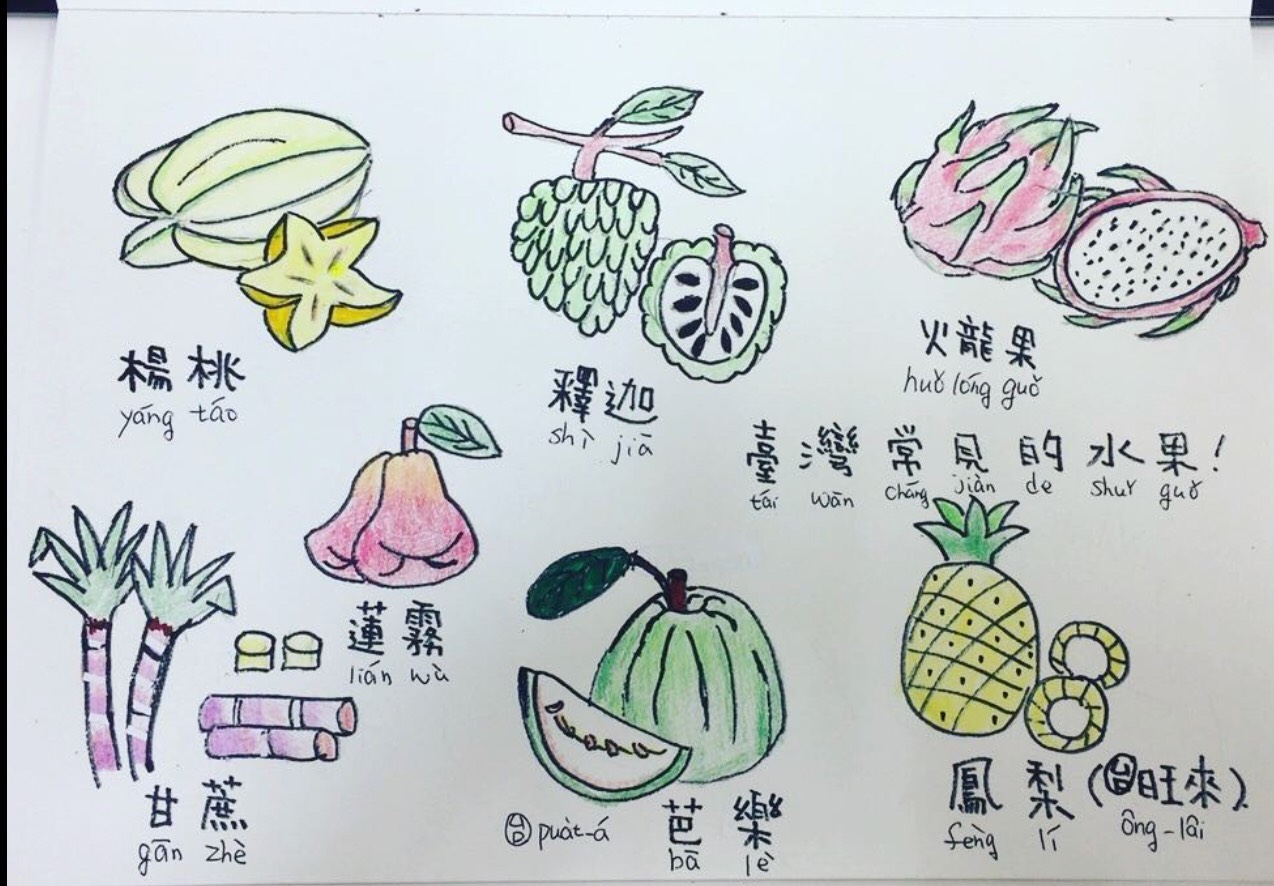 楊桃
yáng táo
釋迦
shì jiā
火龍果
huǒ lóng guǒ
臺灣常見的水果!
tái wān cháng jiàn de shuǐ guǒ
蓮霧
lián wù
甘蔗
gān zhè
芭樂
台 pua̍t-á bā lè
鳳梨(台旺來)
fèng lí ông-lâi